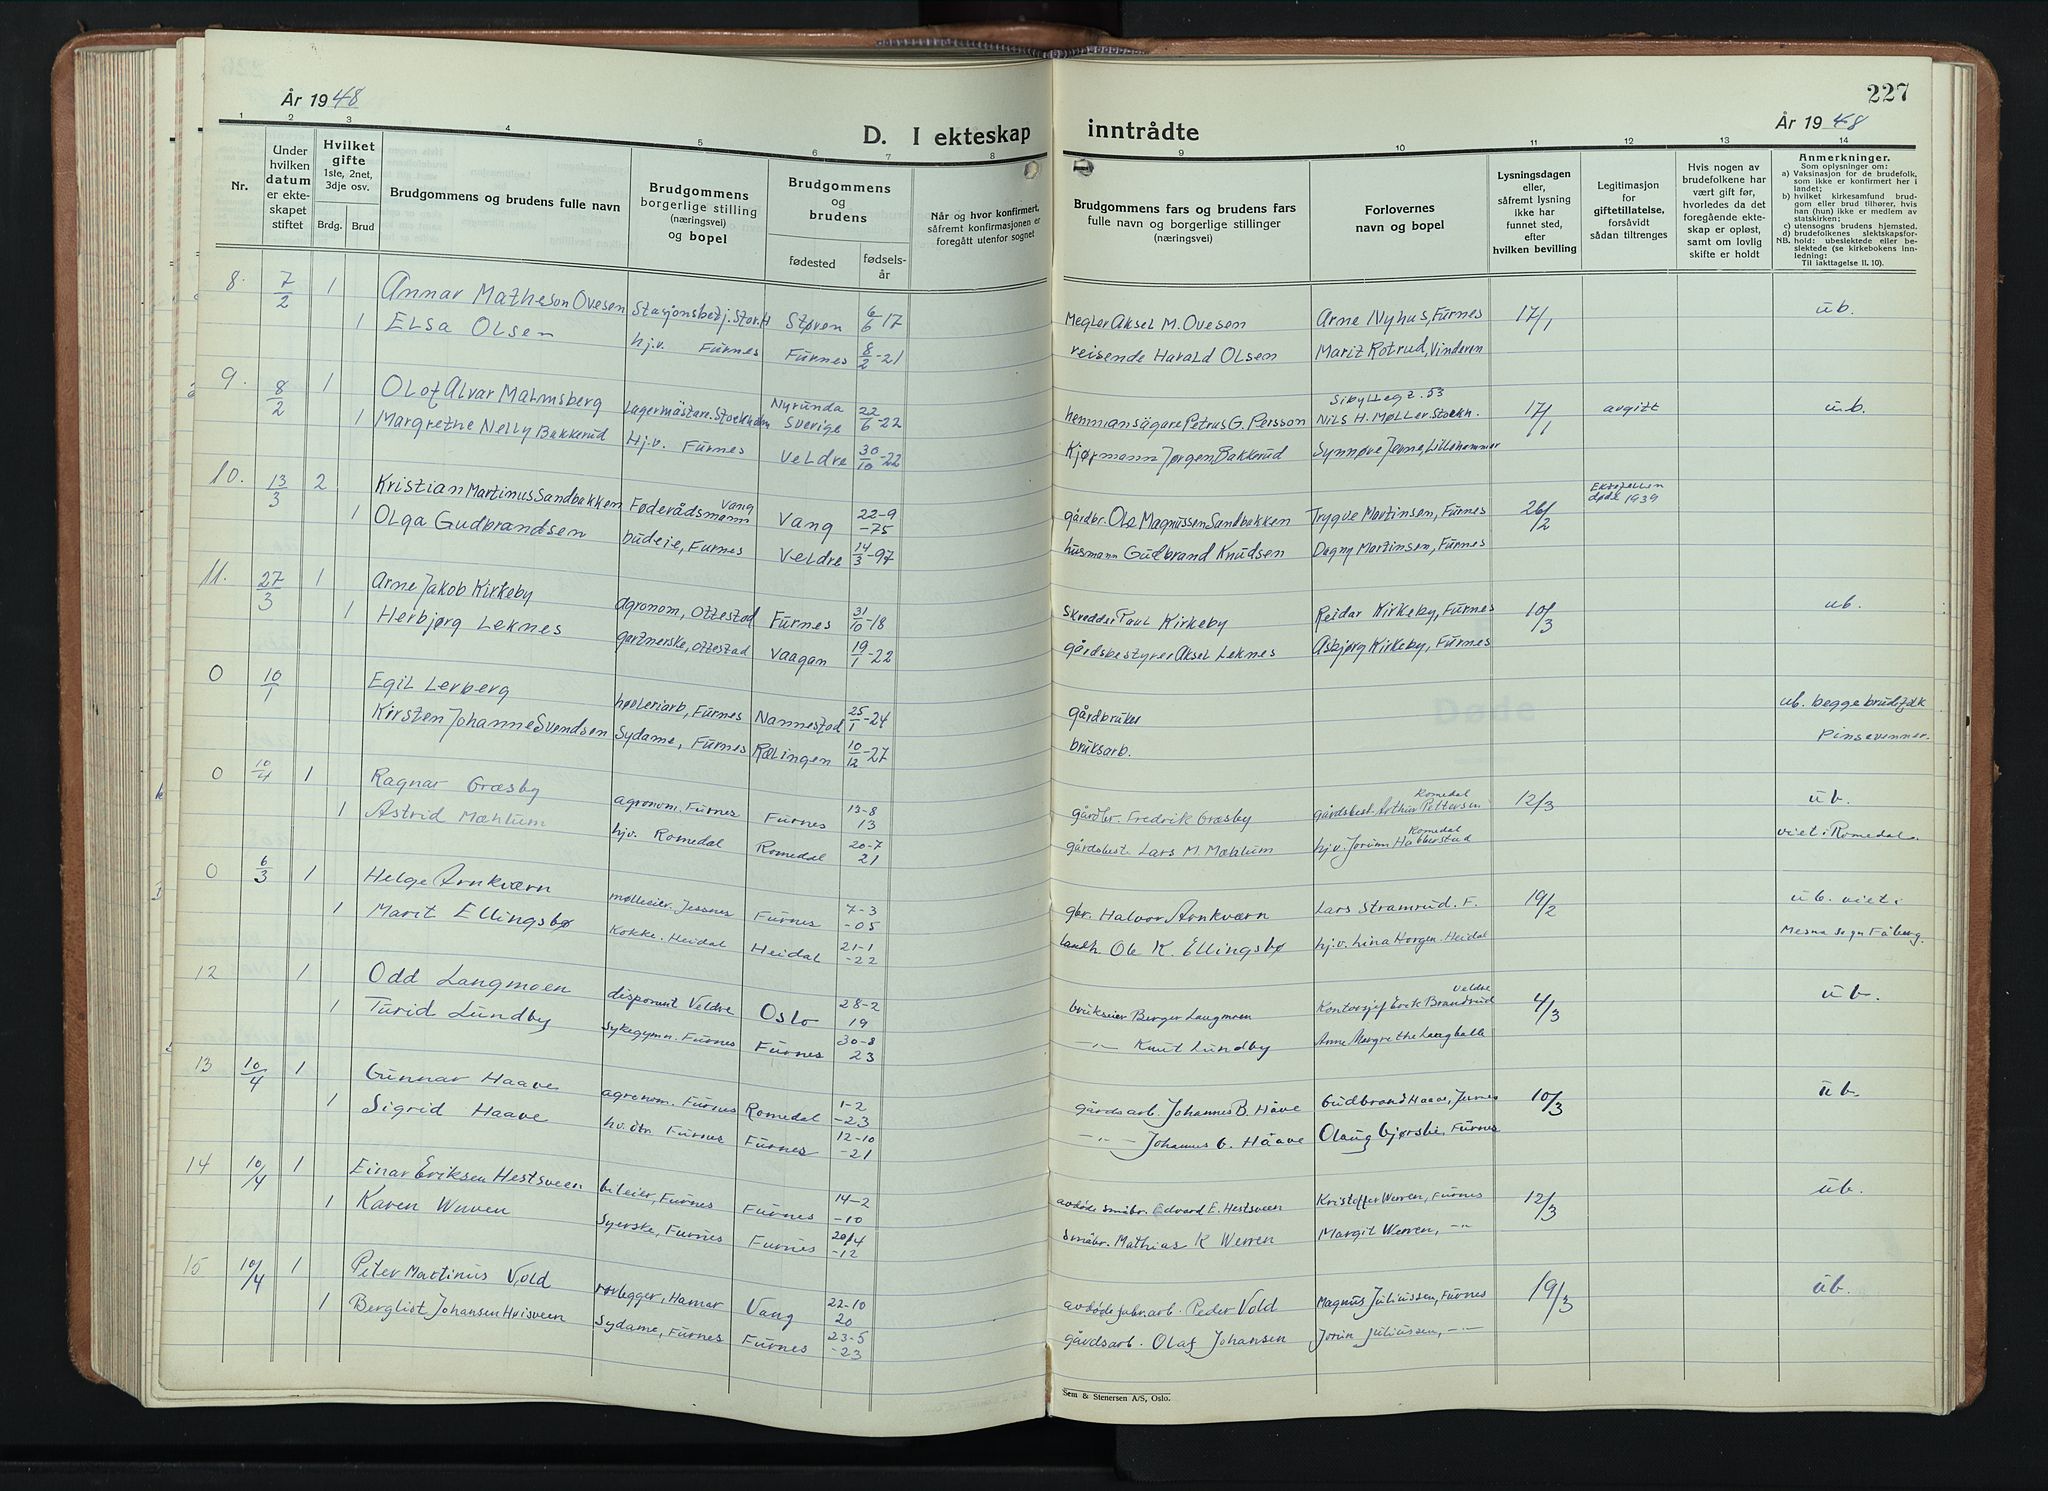 År 1948
D. I ekteskap inntrådte
227
År 1948
1 2 3 4 5 6 7 8 9 10 11 12 13 14
Nr.
Under hvilken datum er ekteskapet stiftet
Hvilket gifte 1ste, 2net, 3dje osv.
Brdg. Brud
Brudgommens og brudens fulle navn
Brudgommens borgerlige stilling (næringsvei) og bopel
Brudgommens og brudens
fødested fødsels-år
Når og hvor konfirmert, såfremt konfirmasjonen er foregått utenfor sognet
Brudgommens fars og brudens fars fulle navn og borgerlige stillinger (næringsvei)
Forlovernes navn og bopel
Lysningsdagen eller, såfremt lysning ikke har funnet sted, efter hvilken bevilling
Legitimasjon for giftetillatelse, forsåvidt sådan tiltrenges
Hvis nogen av brudefolkene har vært gift før, hvorledes da det foregående ekteskap er opløst, samt om lovlig skifte er holdt
Anmerkninger.
Som oplysninger om:
a) Vaksinasjon for de brudefolk, som ikke er konfirmert her i landet;
b) hvilket kirkesamfund brudgom eller brud tilhører, hvis han (hun) ikke er medlem av statskirken;
c) utensogns brudens hjemsted.
d) brudefolkenes slektskapsforhold: ubeslektede eller beslektede (se kirkebokens innledning:
NB.
Til iakttagelse II. 10).
8. 7/2 1 Annar Matheson Ovesen Stasjonsbetj. Stor.H Støren 6/6-17 Megler Aksel M. Ovesen Arne Nyhus, Furnes 17/1 ub.
1 Elsa Olsen hj.v. Furnes Furnes 8/2-21 reisende Harald Olsen Marit Rotrud, Vinderen
9. 8/2 1 Olof Alvar Malmsberg Lagermästare. Stockholm Nyrunda Sverige 22/6-22 hemmansägare Petrus G. Persson Sibyllegt. 53 Nils H. Møller. Stockh. 17/1 avgitt u.b.
1 Margrethe Nelly Bakkerud Hj.v. Furnes Veldre 30/10-22 Kjøpmann Jørgen Bakkerud Synnøve Jerne, Lillehammer
10. 13/3 2 Kristian Martinus Sandbakken Føderådsmann Vang Vang 22-9-75 gårdbr. Ole Magnussen Sandbakken Trygve Martinsen, Furnes 26/2 Ektefellen døde 1939
1 Olga Gudbrandsen budeie, Furnes Veldre 14/3-97 husmann Gudbrand Knudsen Dagny Martinsen, Furnes
11. 27/3 1 Arne Jakob Kirkeby agronom, Ottestad Furnes 31/10-18 Skredder Paul Kirkeby Reidar Kirkeby, Furnes 10/3 ub.
1 Herbjørg Leknes gartnerske, Ottestad Vaagan 19/1-22 gårdsbestyrer Aksel Leknes Asbjørg Kirkeby, Furnes
0 10/1 Egil Lerberg høvleriarb, Furnes Nannestad 25/1-24 gårdbruker ub. begge brudefolk
Kirsten Johanne Svendsen Sydame, Furnes Rælingen 10/12-27 bruksarb. Pinsevenner.
0 10/4 1 Ragnar Græsby agronom. Furnes Furnes 13-8 13 gårdbr. Fredrik Græsby gårdsbest. Arthur Pettersen Romedal 12/3 ub.
1 Astrid Mæhlum hjv. Romedal Romedal 20-7 21 gårdsbest. Lars M. Mæhlum hj.v. Jorunn Habberstad Romedal viet i Romedal.
0 6/3 1 Helge Arnkværn mølleeier. Jessnes Furnes 7-3-05 gbr. Halvor Arnkværn Lars Stramrud. F. 19/2 ub. viet i
1 Marit Ellingsbø Kokke. Heidal Heidal 21-1-22 landh. Ole K. Ellingsbø hj.v. Lina Horgen. Heidal Mesna sogn Fåberg.
12 1 Odd Langmoen disponent Veldre Oslo 28-2 19 brukseier Berger Langmoen Kontorsjef Erik Brandrud Veldre 4/3 ub.
1 Turid Lundby Sykegymn. Furnes Furnes 30-8 23 -"- Knut Lundby Anne Margrethe Langballe
13 10/4 1 Gunnar Haave agronom. Furnes Romedal 1-2-23 gårdsarb. Johannes B. Håve Gudbrand Haave, Furnes 10/3 ub.
1 Sigrid Haave hv. dtr. Furnes Furnes 12-10-21 -"- Johannes G. Hååve Olaug Gjørsli, Furnes
14 10/4 1 Einar Eriksen Hestsveen bileier, Furnes Furnes 14-2-10 avdøde småbr. Edvard E. Hestsveen Kristoffer Werven, Furnes 12/3 ub.
1 Karen Werven Syerske, Furnes Furnes 20/4-12 småbr. Mathias K Werven Margit Werven, -"-
15 10/4 1 Peter Martinus Vold rørlegger, Hamar Vang 22-10 20 avdøde fabr.arb. Peder Vold Magnus Juliussen, Furnes 19/3 ub.
1 Bergliot Johansen Hvisveen Sydame, Furnes Furnes 23-5-23 gårdsarb. Olaf Johansen Jorun Juliussen, -"-
Sem & Stenersen A/S, Oslo.